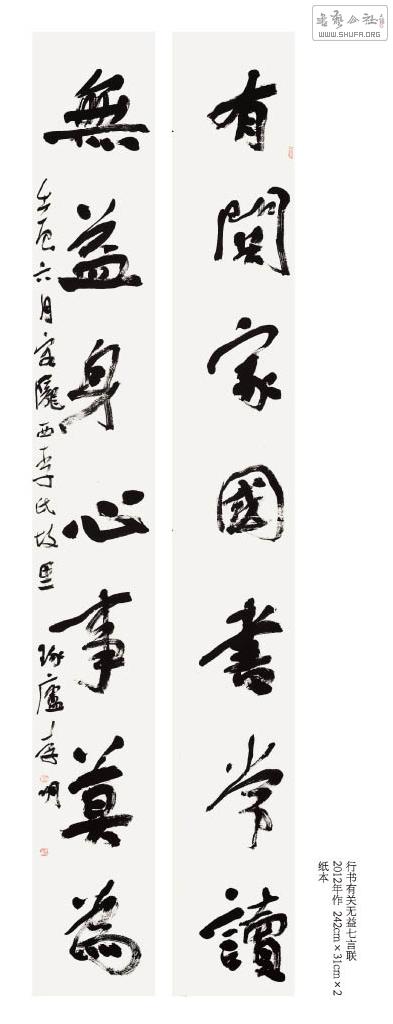 有關家國書常讀
無益身心事莫為
壬辰六月寫隴西李氏故里 琢廬李明
書藝公社
WWW.SHUFA.ORG
行书有关无益七言联
2012年作 242cm×31cm×2
纸本